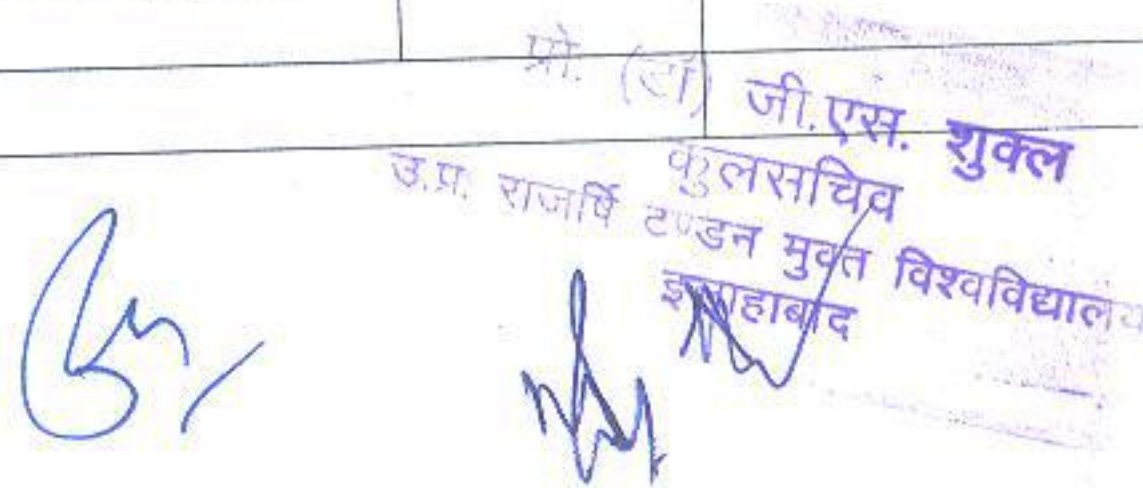 प्रो. (डा) जी.एस. शुक्ल
कुलसचिव
उ.प्र. राजर्षि टण्डन मुक्त विश्वविद्यालय
इलाहाबाद